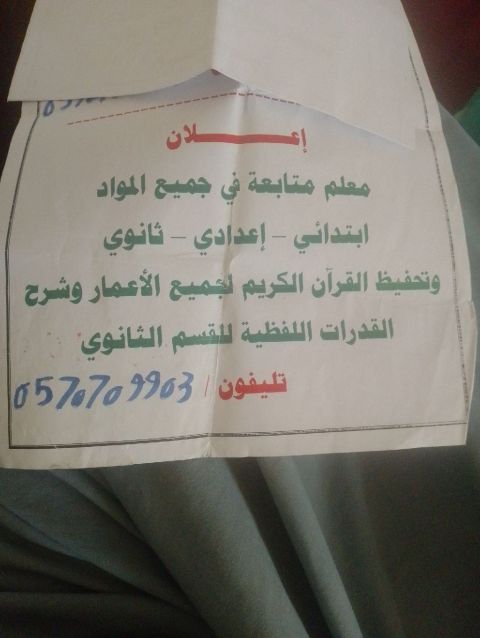 إعـــــلان
معلم متابعة في جميع المواد
ابتدائي - إعدادي - ثانوي
وتحفيظ القرآن الكريم لجميع الأعمار وشرح
القدرات اللفظية للقسم الثانوي
تليفون / 0570709903